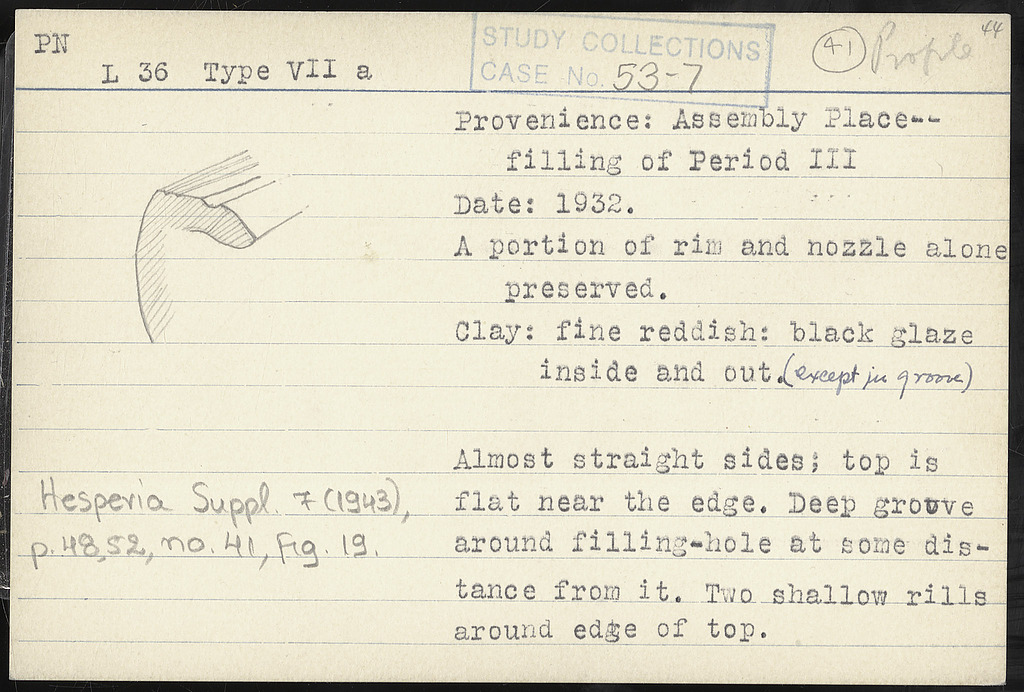 PN
L 36 Type VII a
STUDY COLLECTIONS
CASE No. 53-7
41 Profile
44
Provenience: Assembly Place--
filling of Period III
Date: 1932.
A portion of rim and nozzle alone
preserved.
Clay: fine reddish: black glaze
inside and out. (except in groove)
Almost straight sides; top is
flat near the edge. Deep groove
around filling-hole at some dis-
tance from it. Two shallow rills
around edge of top.
Hesperia Suppl. 7 (1943),
p. 48,52, no. 41, fig. 19.